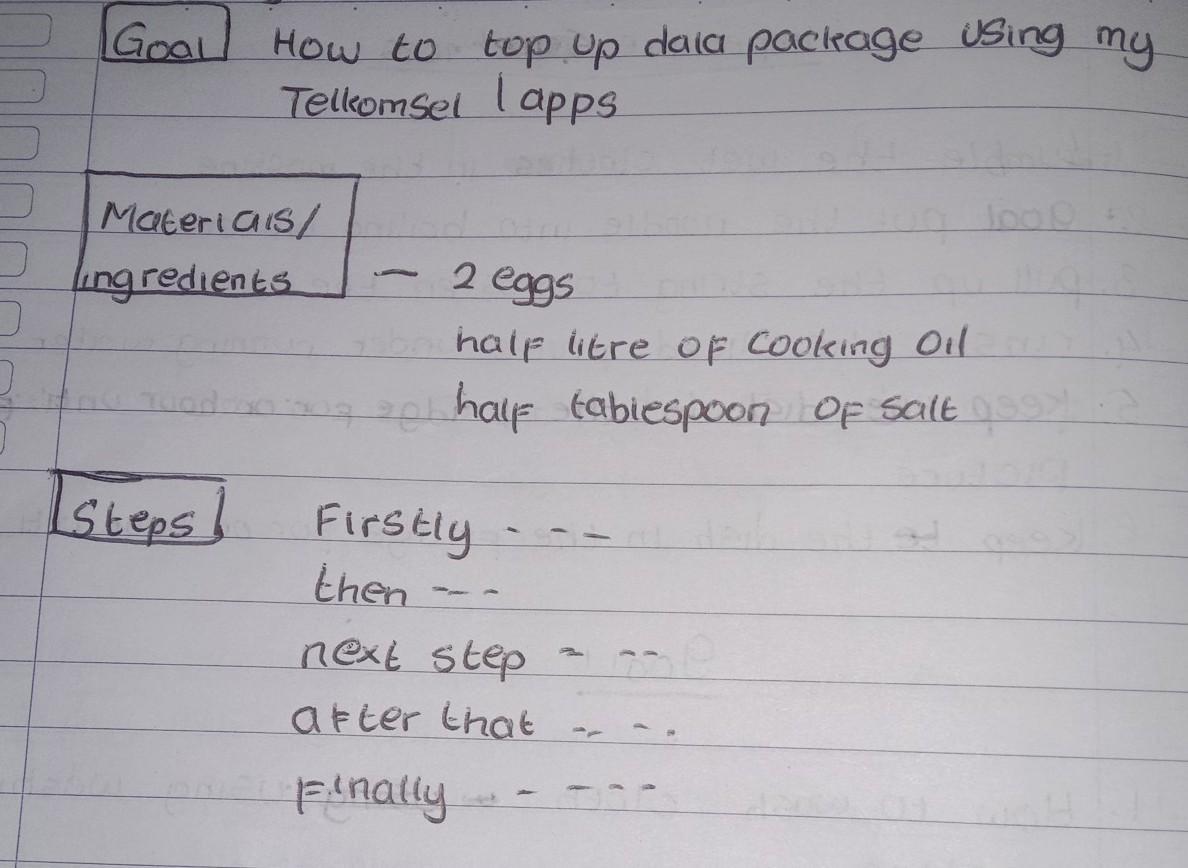 Goal How to top up data package using my
Telkomsel / apps
Materials/
ingredients - 2 eggs
half litre of cooking oil
half tablespoon of salt
Steps Firstly ---
then ---
next step ---
after that ---
Finally ----